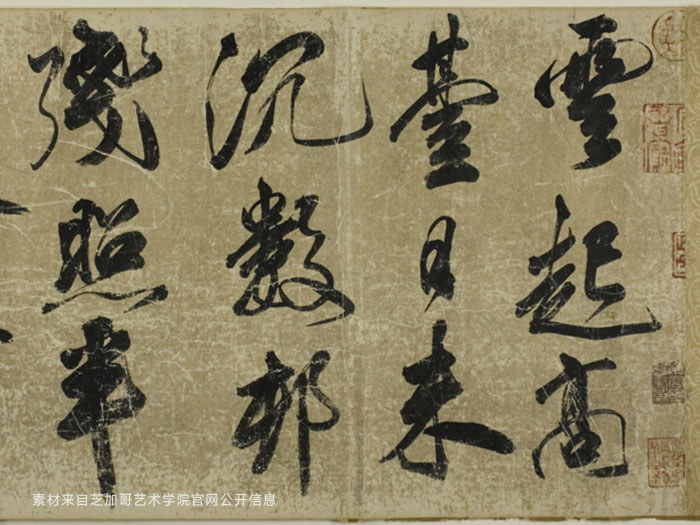 雲起高
臺日未
沉數邨
殘照半
素材来自芝加哥艺术学院官网公开信息